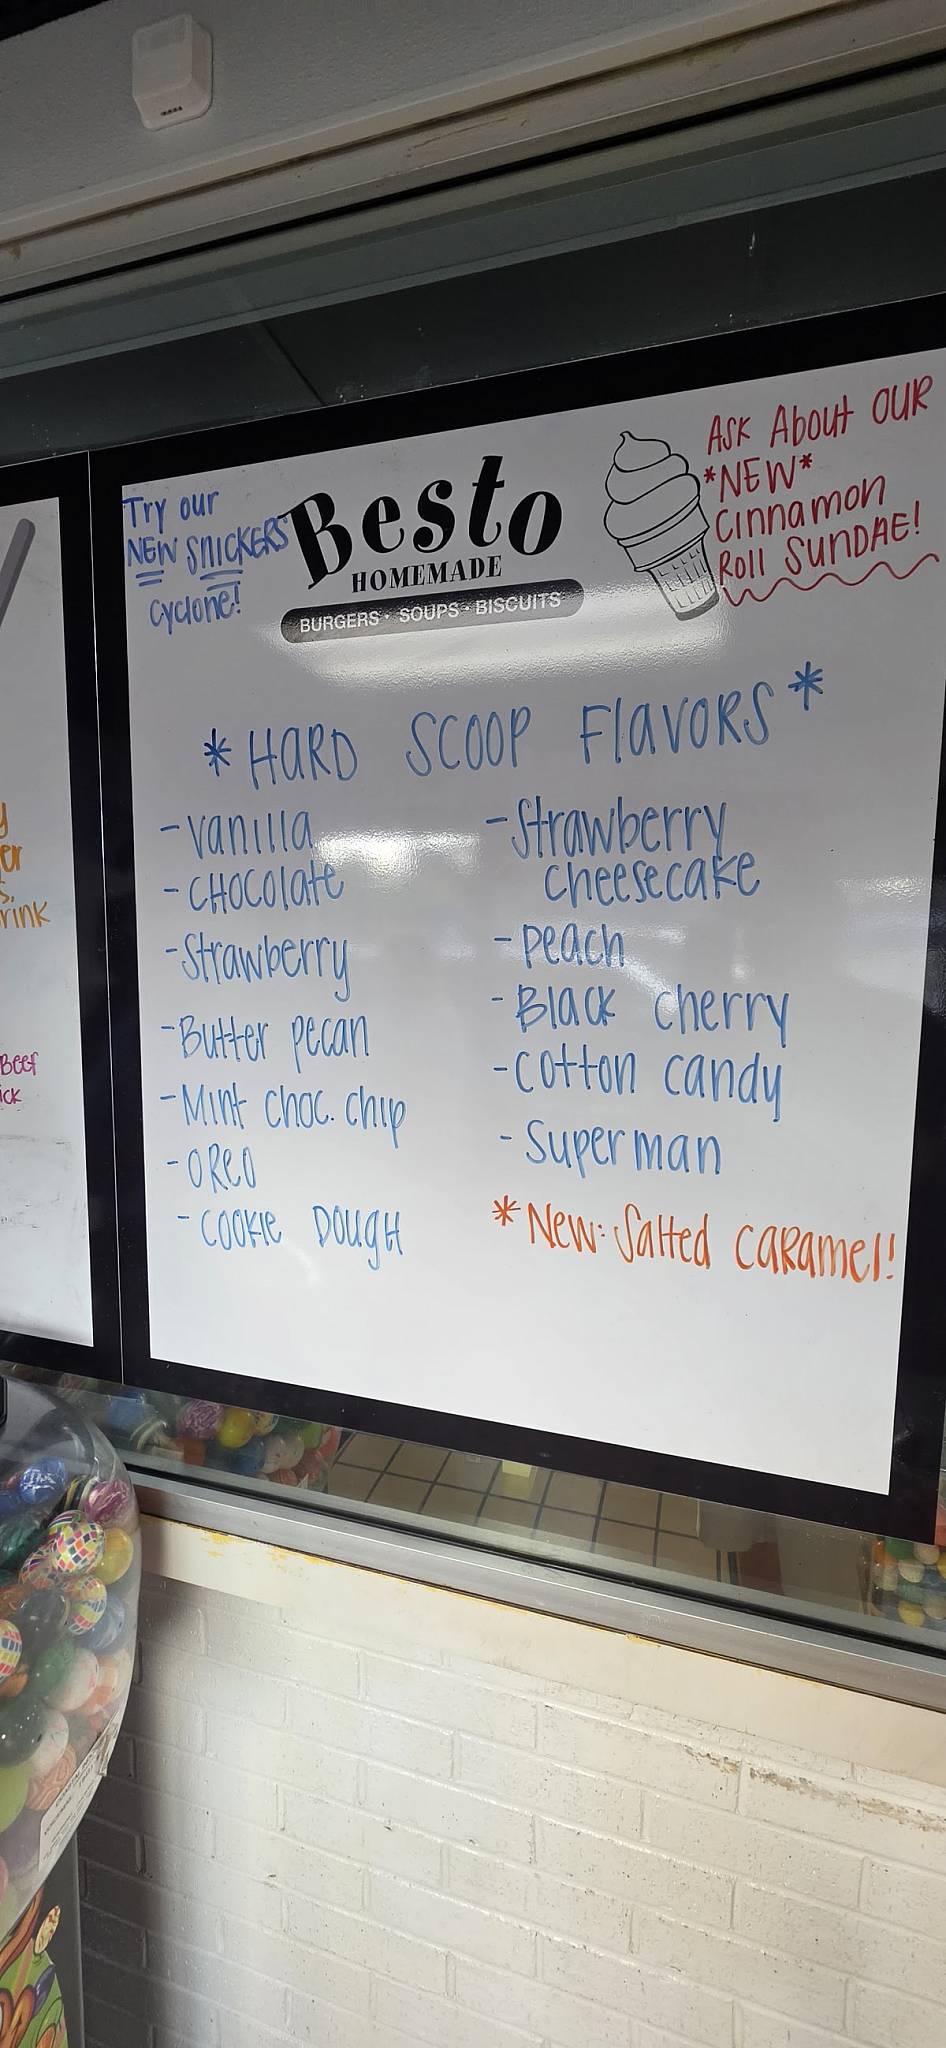 Try our
NEW SNICKERS
Cyclone!
Besto
HOMEMADE
BURGERS · SOUPS · BISCUITS
ASK About OUR
*NEW*
Cinnamon
Roll SUNDAE!
*HARD SCOOP FlavorS*
-Vanilla
-CHOCOlate
-Strawberry
-Butter pecan
-Mint choc. chip
-OREO
-COOKIE DOUGH
-Strawberry
cheesecake
-Peach
-Black cherry
-Cotton candy
-Superman
*New: Salted CARAmel!
rink
Beef